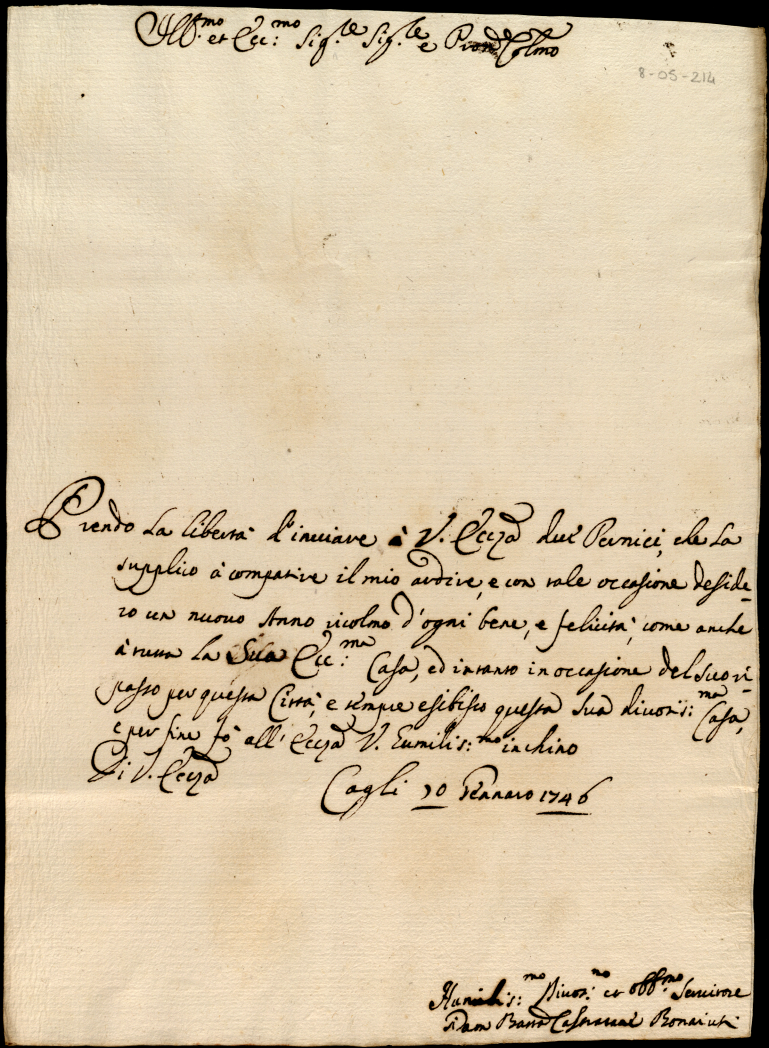 Ill.mo et Ecc:mo Sig.le Sig.le e Pron Colmo
8-05-214
Prendo La libertà d'inviare à V. Ecc.za due Pernici, che La
supplico à compatire il mio ardire, e con tale occasione deside=
ro un nuovo Anno ricolmo d'ogni bene, e felicità, come anche
à tutta La Sua Ecc:ma Casa, ed intanto in occasione del suo ri=
passo per questa Città, e sempre esibisco questa Sua divotis:ma Casa,
e per fine fò all' Ecc.za V. Eumilis:mo inchino
Di V. Ecc.za
Cagli 10 Gennaro 1746
Humilis:mo Divot:mo et obb.mo Servitore
Bonaiuti